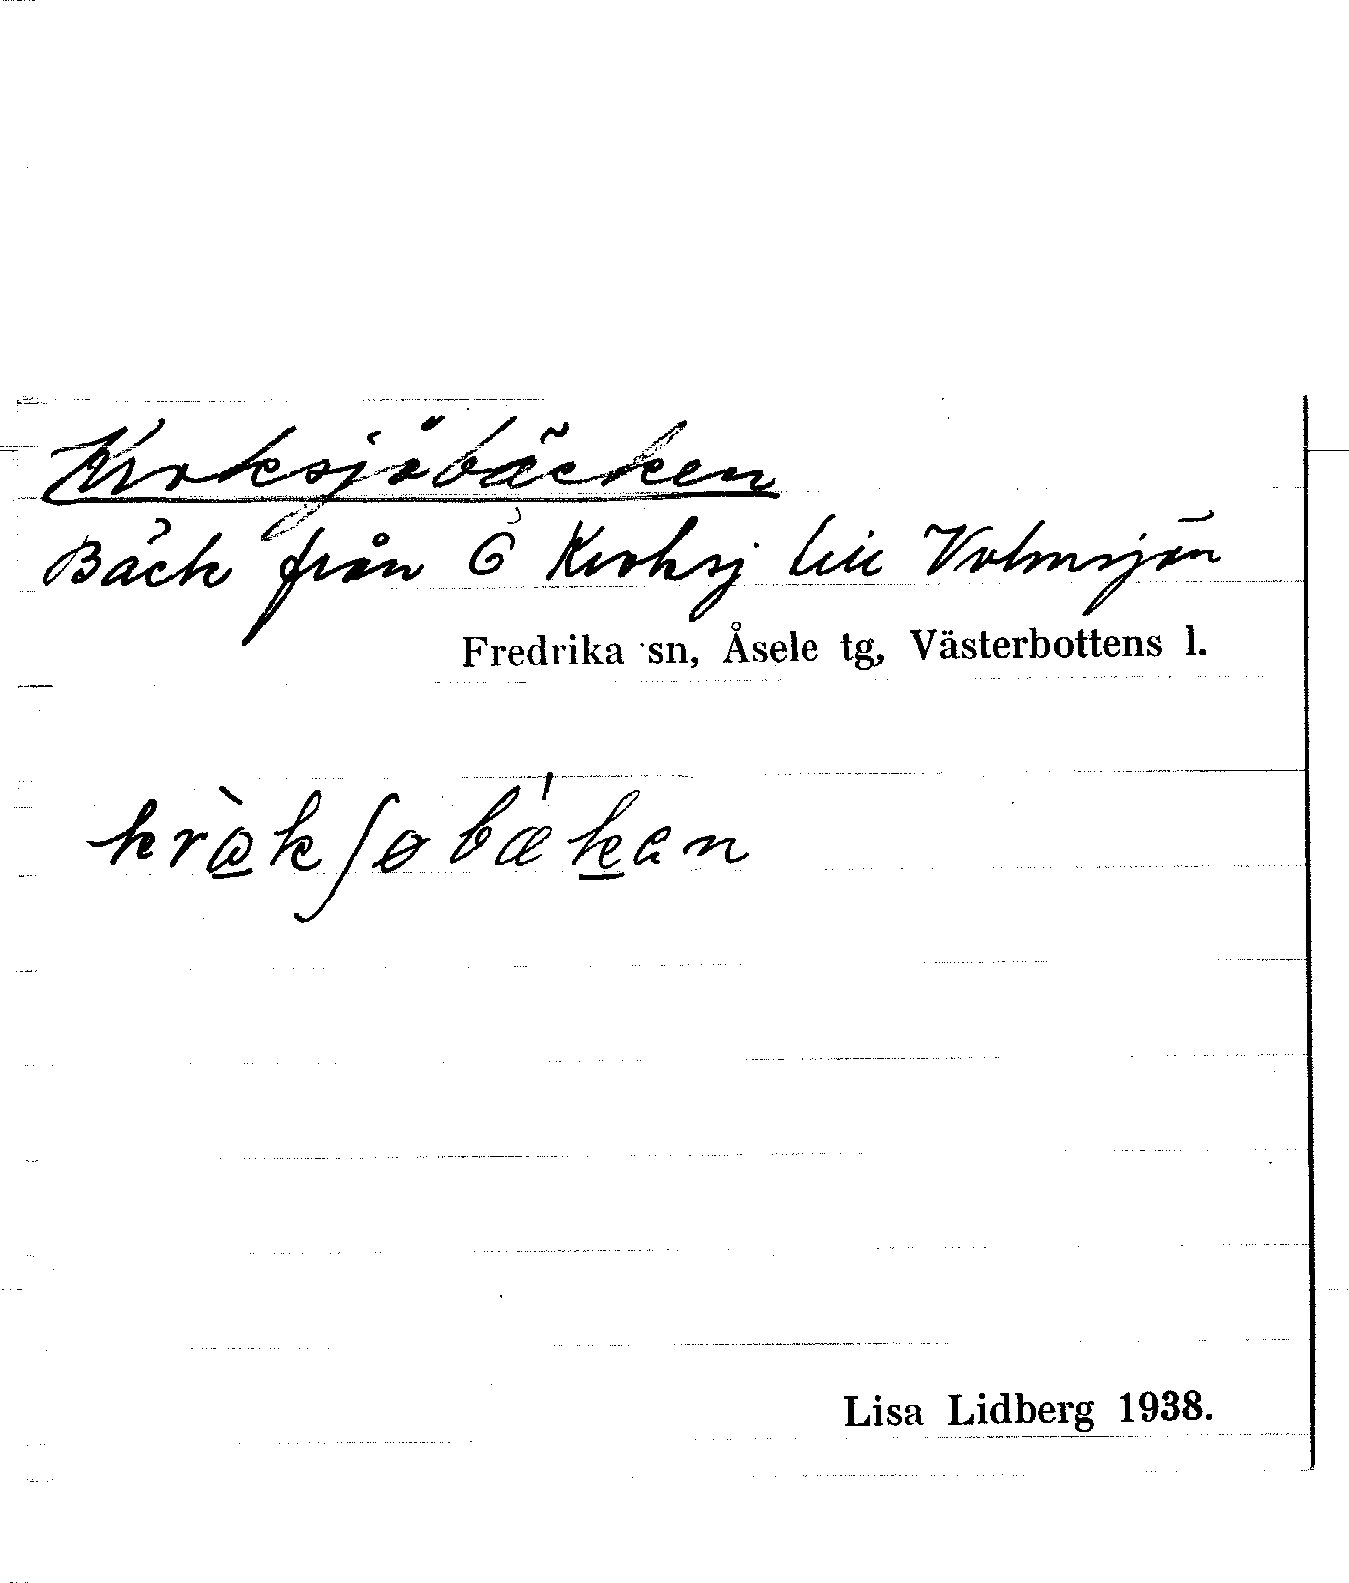 Kroksjöbäcken
Bäck från Ö Kroksj till Volmsjön
Fredrika sn, Åsele tg, Västerbottens l.
Lisa Lidberg 1938.